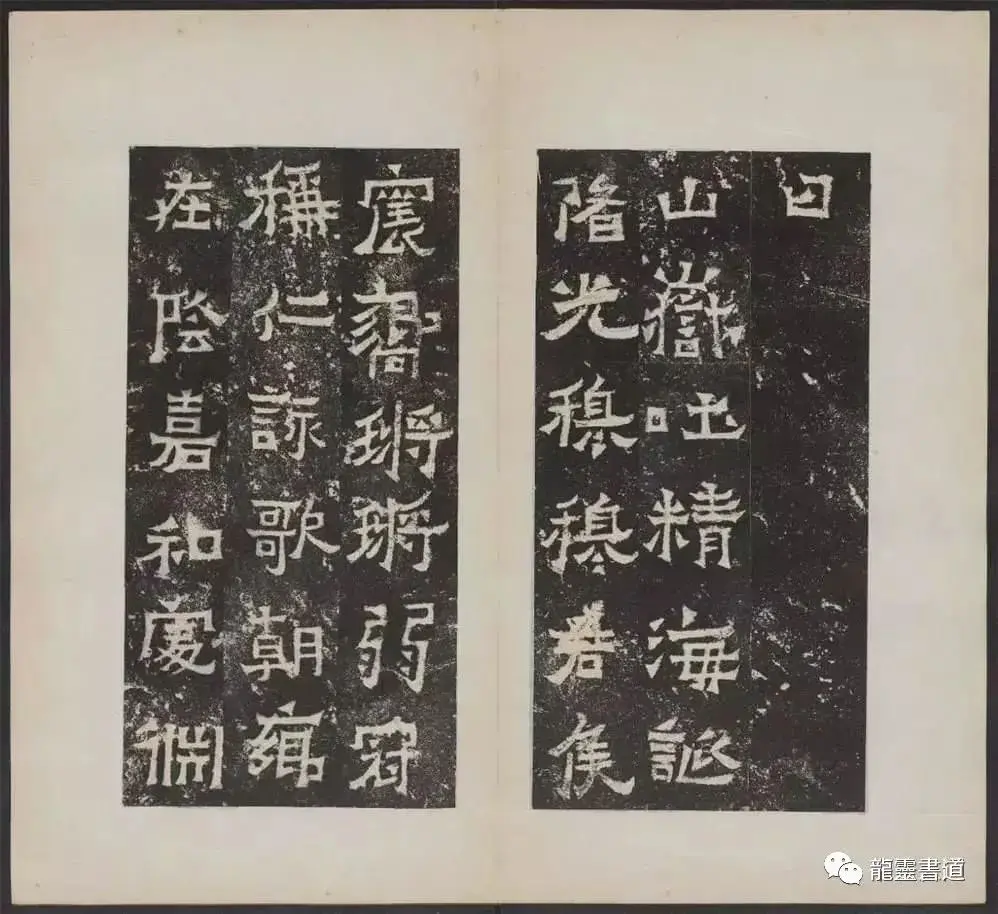 曰
山嶽吐精海誕
陼光穆穆君侯
震嚮鏘鏘弱冠
稱仁詠歌朝鄉
在陰嘉和處淵
龍靈書道